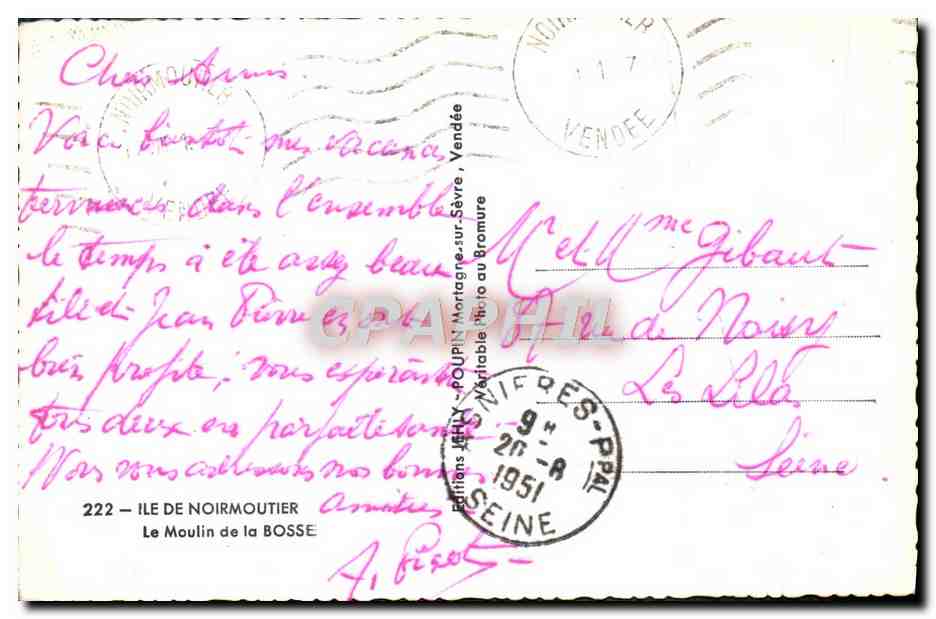 Chers Amis.
Voici bientôt mes vacances
terminées dans l'ensemble
le temps à été assez beau
Jean Pierre en ont
bien profité, vous espérant
tous deux en parfaite santé.
Nous vous adressons nos bonnes
amitiés
222 — ILE DE NOIRMOUTIER
Le Moulin de la BOSSE
Editions JEHLY - POUPIN Mortagne-sur-Sèvre, Vendée
Véritable Photo au Bromure
NOIRMOUTIER
VENDEE
NOIRMOUTIER
VENDEE
Mr et Mme Gibaut
rue de Noisy
Les Lilas
Seine
ASNIERES-PPAL
9H
20-8
1951
SEINE
CPAPHIL